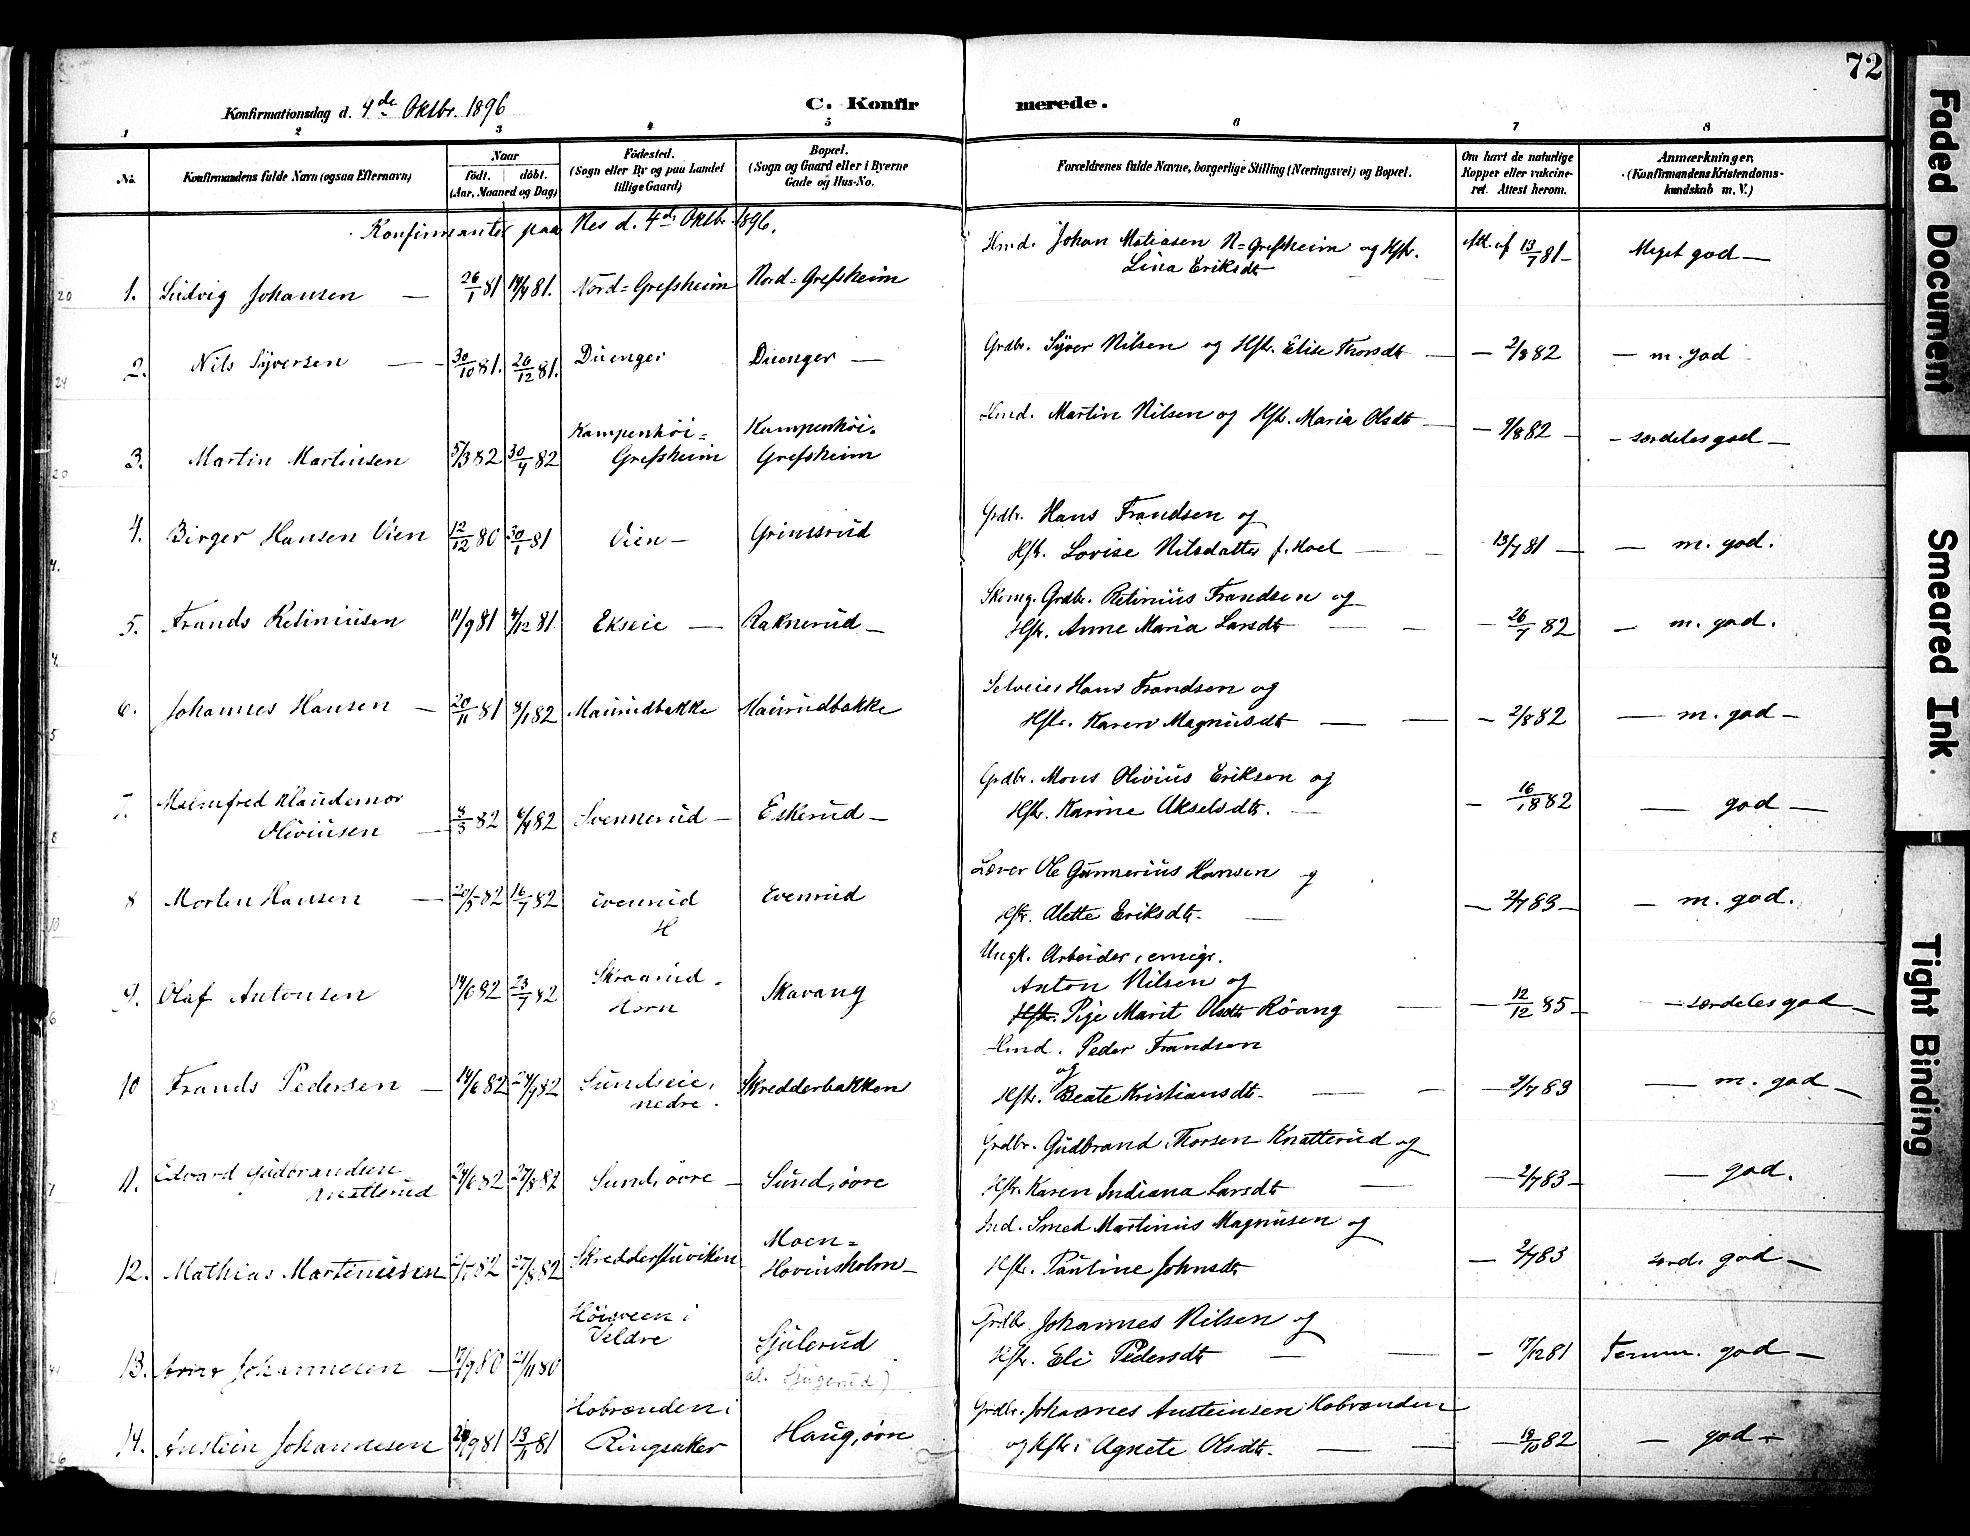 72
Konfirmationsdag d. 4de Oktbr. 1896
C. Konfirmerede.
1 2 3 4 5 6 7 8
No. Konfirmandens fulde Navn (ogsaa Efternavn) Naar født. døbt. (Aar, Maaned og Dag) Fødested. (Sogn eller By og paa Landet tillige Gaard) Bopæl. (Sogn og Gaard eller i Byerne Gade og Hus-No. Forældrenes fulde Navne, borgerlige Stilling (Næringsvei) og Bopæl. Om havt de naturlige Kopper eller vakcineret. Attest herom. Anmærkninger. (Konfirmandens Kristendomskundskab m. V.)
Konfirmanter paa Nes d. 4de Oktbr. 1896.
1. Ludvig Johansen — 26/1 81 18/4 81. Nord=Grefsheim Nord=Grefsheim Hmd. Johan Matiasen N=Grefsheim og Hstr. Lina Eriksdt Att. af 13/7 81 — Meget god —
2. Nils Syversen — 30/10 81. 26/12 81. Duenger Duenger — Grdbr. Syver Nilsen og Hstr. Elise Thorsdt — 2/8 82 — m. god
3. Martin Martinsen 5/3 82 30/4 82 Kampenhöi=Grefsheim Kampenhöi=Grefsheim Hmd. Martin Nilsen og Hstr. Maria Olsdt — 9/8 82 — særdeles god —
4. Birger Hansen Vien 12/12 80 30/1 81 Vien — Grinsrud Grdbr. Hans Frandsen og Hstr. Lovise Nilsdatter f. Hoel — 13/7 81 — m. god.
5. Frands Retiniusen 11/9 81 4/12 81. Ekseie — Raknerud — Skomg. Grdbr. Retinius Frandsen og Hstr. Anne Maria Larsdt — 26/7 82 — m. god.
6. Johannes Hansen — 20/11 81 8/1 82 Maurudbakke Maurudbakke Selveier Hans Frandsen og Hstr. Karen Magnusdt — 2/8 82 — m. god —
7. Malmfred Klaudemor Oliviusen — 3/3 82 82 Svennerud — Eskerud — Grdbr. Mons Olivius Eriksen og Hstr. Karine Akselsdtr. — 82 — god —
8 Morten Hansen — 20/5 82 16/7 82 Evenrud H Evenrud Lærer Ole Gunnerius Hansen og Hstr. Olette Eriksdtr. — 2/7 83 — m. god.
9. Olaf Antonsen 14/6 82 23/7 82 Skraarud Horn Skavang Ungk. Arbeider, emigr. Anton Nilsen og Hstr. Pige Marit Olsdtr Röang — 12/12 85 — særdeles god —
10 Frands Pedersen — 14/6 82 24/9 82 Sundseie, nedre. Skredderbakken Hmd. Peder Frandsen og Hstr. Beate Kristiansdtr. — 2/7 83 — m. god —
11. Edvard Gudbrandsen Knatterud 24/6 82 27/8 82 Sund, övre — Sund, övre Grdbr. Gudbrand Thorsen Knatterud og Hstr. Karen Indiana Larsdtr — 2/7 83 — god.
12. Mathias Martiniusen 82 27/8 82 Skredderstuviken Moen=Hovinsholm — Ind. Smed Martinius Magnusen og Hstr. Pauline Johnsdtr — 2/7 83 særd. god —
13. Arne Johannesen — 17/9 80 21/11 80 Höisveen i Veldre Sjulerud al. Sjugerud) Grdbr. Johannes Nilsen og Hstr. Eli Pedersdtr — 17/12 81 Temm. god —
14. Austein Johannesen 81 13/11 81 Hobrænden i Ringsaker Haug, övre Grdbr. Johannes Austeinsen Hobrænden og Hstr. Agnete Olsdtr. — 19/10 82 — god —
Faded Document
Smeared Ink
Tight Binding